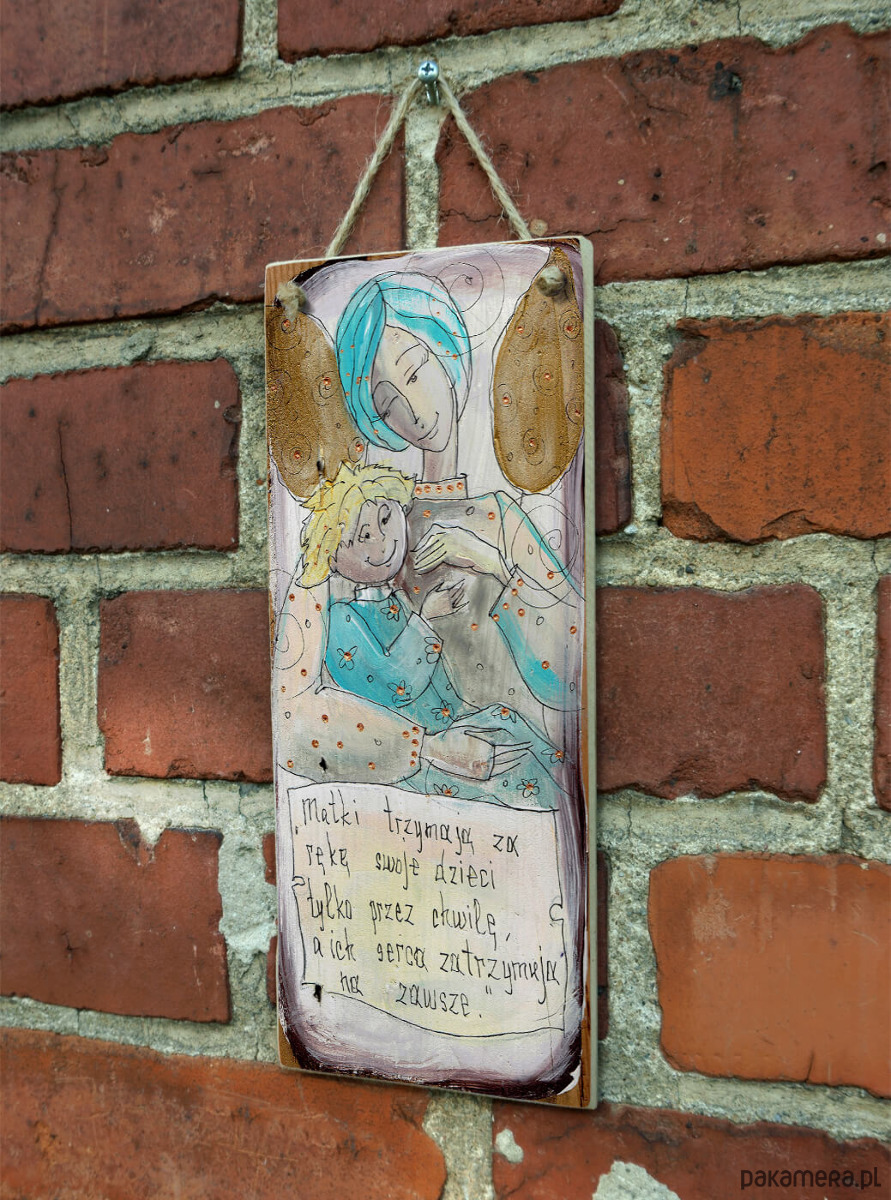 „Matki trzymają za
rękę swoje dzieci
tylko przez chwilę,
a ich serca zatrzymują
na zawsze."
pakamera.pl